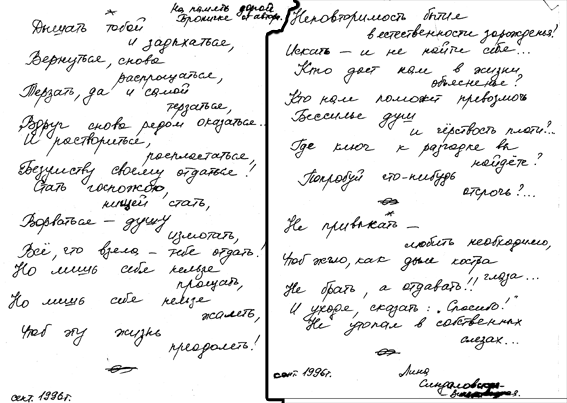 На память дорогой
Трошике от автора
*
Дышать тобой
и задыхаться,
Вернуться, снова
распрощаться,
Терзать, да и самой
терзаться,
Вдруг снова рядом оказаться...
И раствориться,
распластаться,
Безумству своему отдаться!
Стать госпожою,
нищей стать,
Ворваться – душу
измотать,
Всё, что взяла – тебе отдать!
Но лишь себе нельзя
прощать,
Но лишь себе нельзя
жалеть,
Чтоб эту жизнь
преодолеть!
сент. 1996г.
Неповторимость бытия
в естественности зарожденья!
Искать – и не найти себя...
Кто даст нам в жизни
объясненье?
Кто нам поможет превозмочь
Бессилье душ
и чёрствость плоти?..
Где ключ к разгадке вы
найдёте?
Попробуй что-нибудь
отсрочь?...
*
Не привыкать –
любить необходимо,
Чтоб жгло, как дым костра
глаза...
Не брать, а отдавать!!
И уходя, сказать: „Спасибо!"
Не утопая в собственных
слезах...
сент. 1996г.
Лина